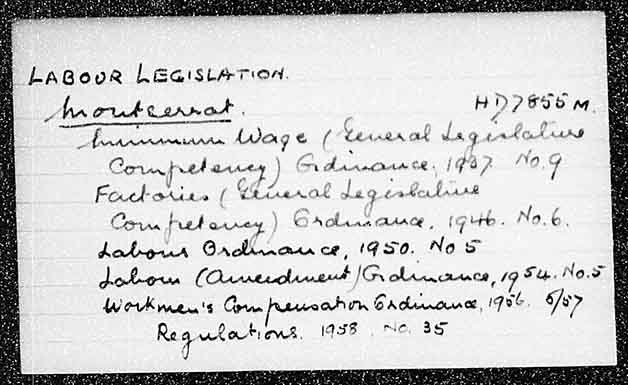 LABOUR LEGISLATION.
Montserrat. HD7855M.
Minimum Wage (General Legislative
Competency) Ordinance, 1937. No. 9
Factories (General Legislative
Competency) Ordinance, 1946. No. 6.
Labour Ordinance, 1950. No 5
Labour (Amendment) Ordinance, 1954. No. 5
Workmen's Compensation Ordinance, 1956. 5/57
Regulations. 1958. No. 35